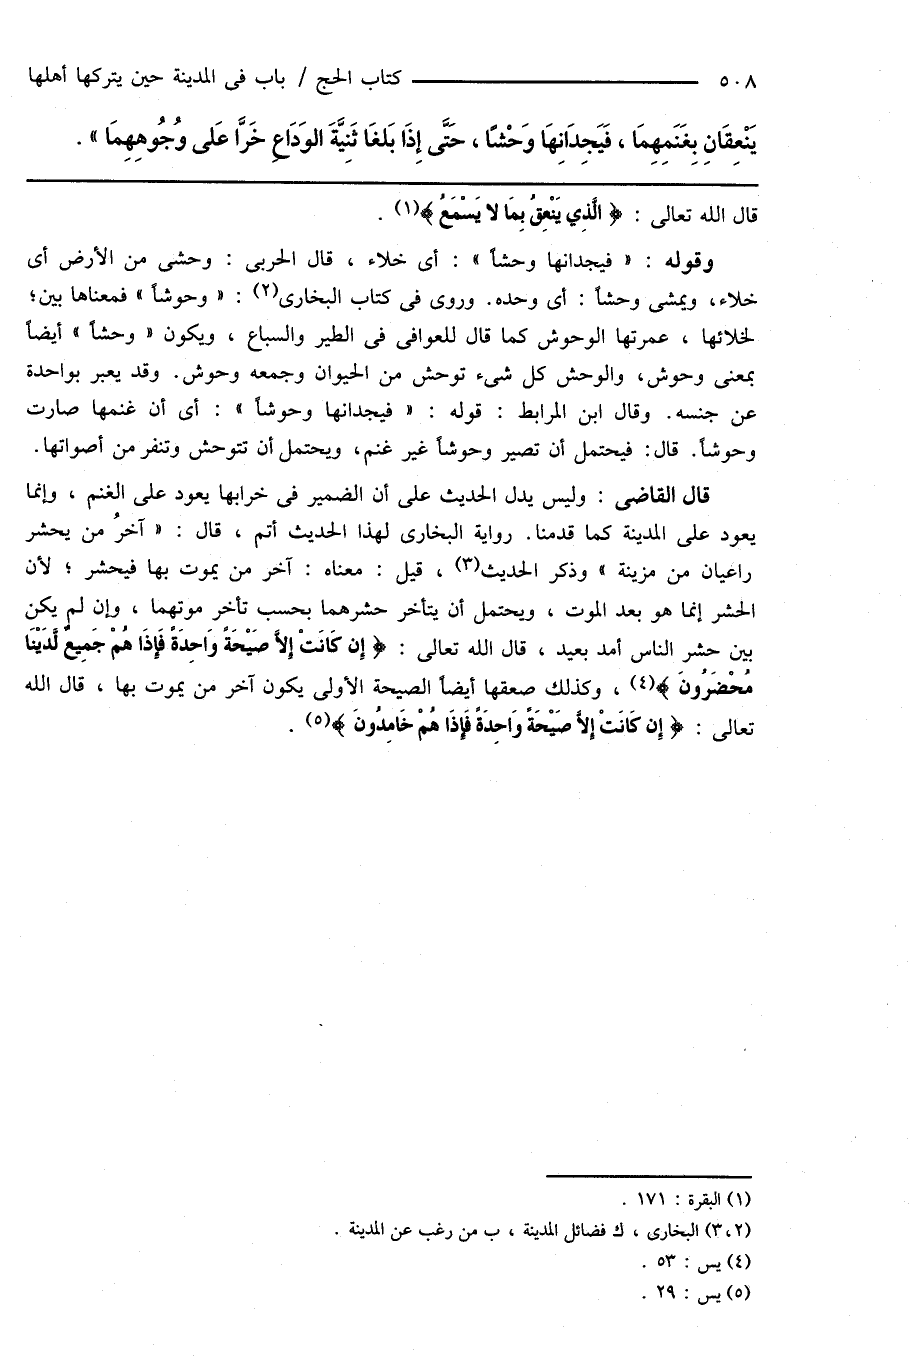 ٥٠٨ كتاب الحج / باب فى المدينة حين يتركها أهلها
يَنْعِقَانِ بِغَنَمِهِمَا ، فَيَجِدَانِهَا وَحْشًا ، حَتَّى إِذَا بَلَغَا ثَنِيَّةَ الوَدَاعِ خَرَّا عَلَى وُجُوهِهِمَا » .
قال الله تعالى : ﴿ الَّذِي يَنْعِقُ بِمَا لا يَسْمَعُ ﴾(١) .
وقوله : « فيجدانها وحشاً » : أى خلاء ، قال الحربى : وحشى من الأرض أى
خلاء، ويمشى وحشاً : أى وحده. وروى فى كتاب البخارى(٢) : « وحوشاً » فمعناها بين؛
لخلائها ، عمرتها الوحوش كما قال للعوافى فى الطير والسباع ، ويكون « وحشاً » أيضاً
بمعنى وحوش، والوحش كل شىء توحش من الحيوان وجمعه وحوش. وقد يعبر بواحدة
عن جنسه. وقال ابن المرابط : قوله : « فيجدانها وحوشاً » : أى أن غنمها صارت
وحوشاً. قال: فيحتمل أن تصير وحوشاً غير غنم، ويحتمل أن تتوحش وتنفر من أصواتها.
قال القاضى : وليس يدل الحديث على أن الضمير فى خرابها يعود على الغنم ، وإنما
يعود على المدينة كما قدمنا. رواية البخارى لهذا الحديث أتم ، قال : « آخرُ من يحشر
راعيان من مزينة » وذكر الحديث(٣) ، قيل : معناه : آخر من يموت بها فيحشر ؛ لأن
الحشر إنما هو بعد الموت ، ويحتمل أن يتأخر حشرهما بحسب تأخر موتهما ، وإن لم يكن
بين حشر الناس أمد بعيد ، قال الله تعالى : ﴿ إِن كَانَتْ إِلاَّ صَيْحَةً وَاحِدَةً فَإِذَا هُمْ جَمِيعٌ لَّدَيْنَا
مُحْضَرُونَ ﴾(٤) ، وكذلك صعقها أيضاً الصيحة الأولى يكون آخر من يموت بها ، قال الله
تعالى : ﴿ إِن كَانَتْ إِلاَّ صَيْحَةً وَاحِدَةً فَإِذَا هُمْ خَامِدُونَ ﴾(٥) .
(١) البقرة : ١٧١ .
(٢،٣) البخارى ، ك فضائل المدينة ، ب من رغب عن المدينة .
(٤) يس : ٥٣ .
(٥) يس : ٢٩ .